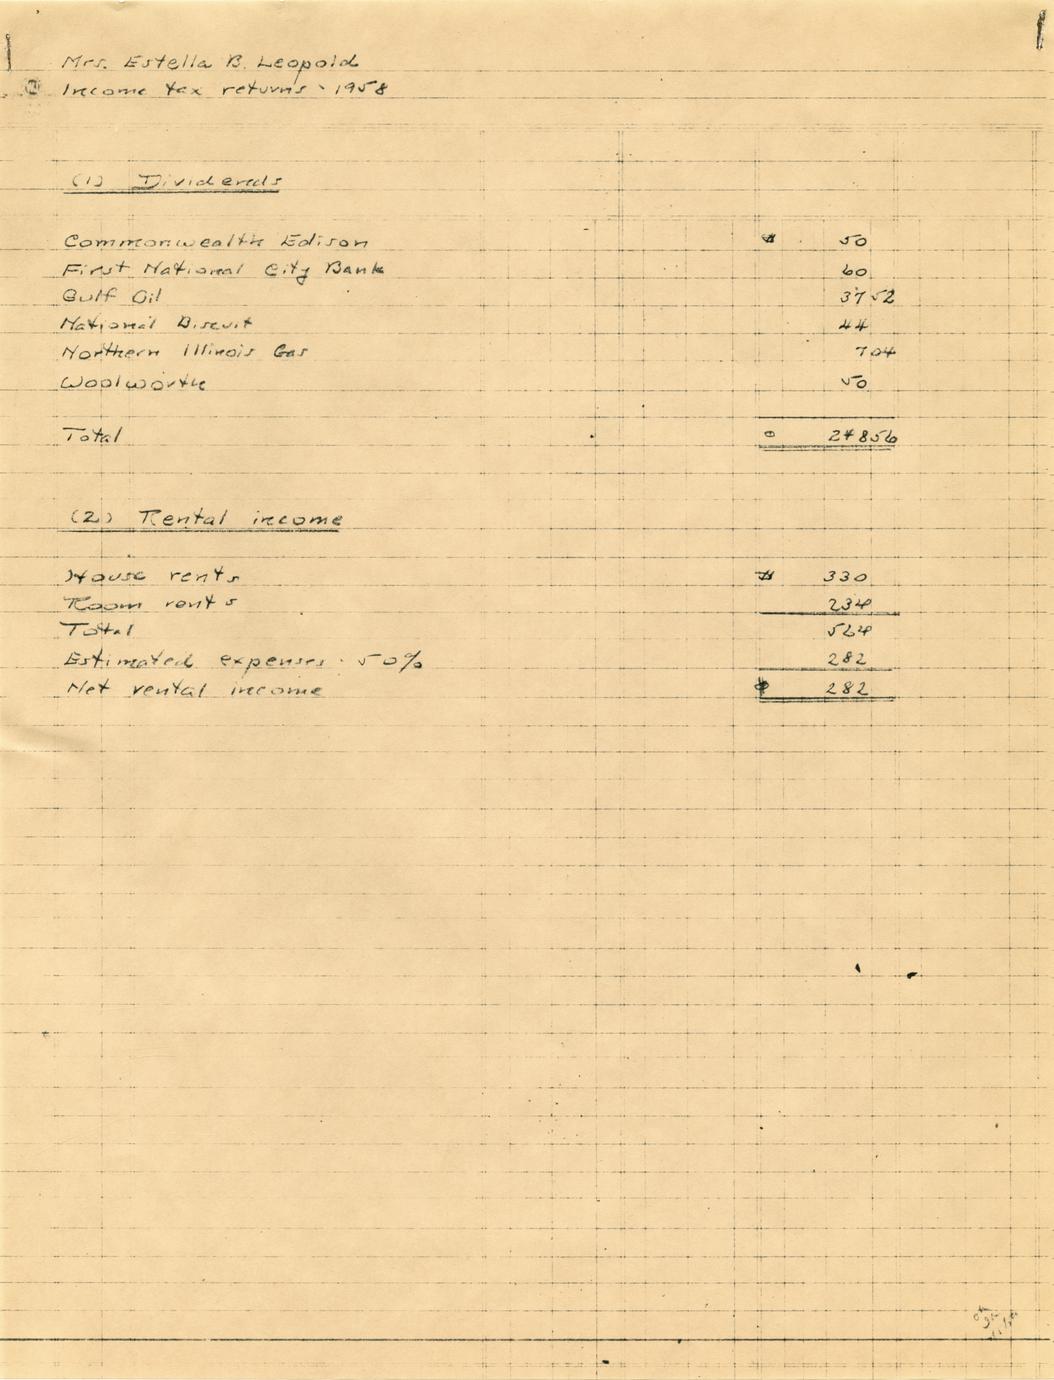 Mrs. Estella B. Leopold
Income tax returns - 1958
(1) Dividends
Commonwealth Edison $ 50
First National City Bank 60
Gulf Oil 37 52
National Biscuit 44
Northern Illinois Gas 7 04
Woolworth 50
Total $ 248 56
(2) Rental income
House rents $ 330
Room rents 234
Total 564
Estimated expenses - 50% 282
Net rental income $ 282